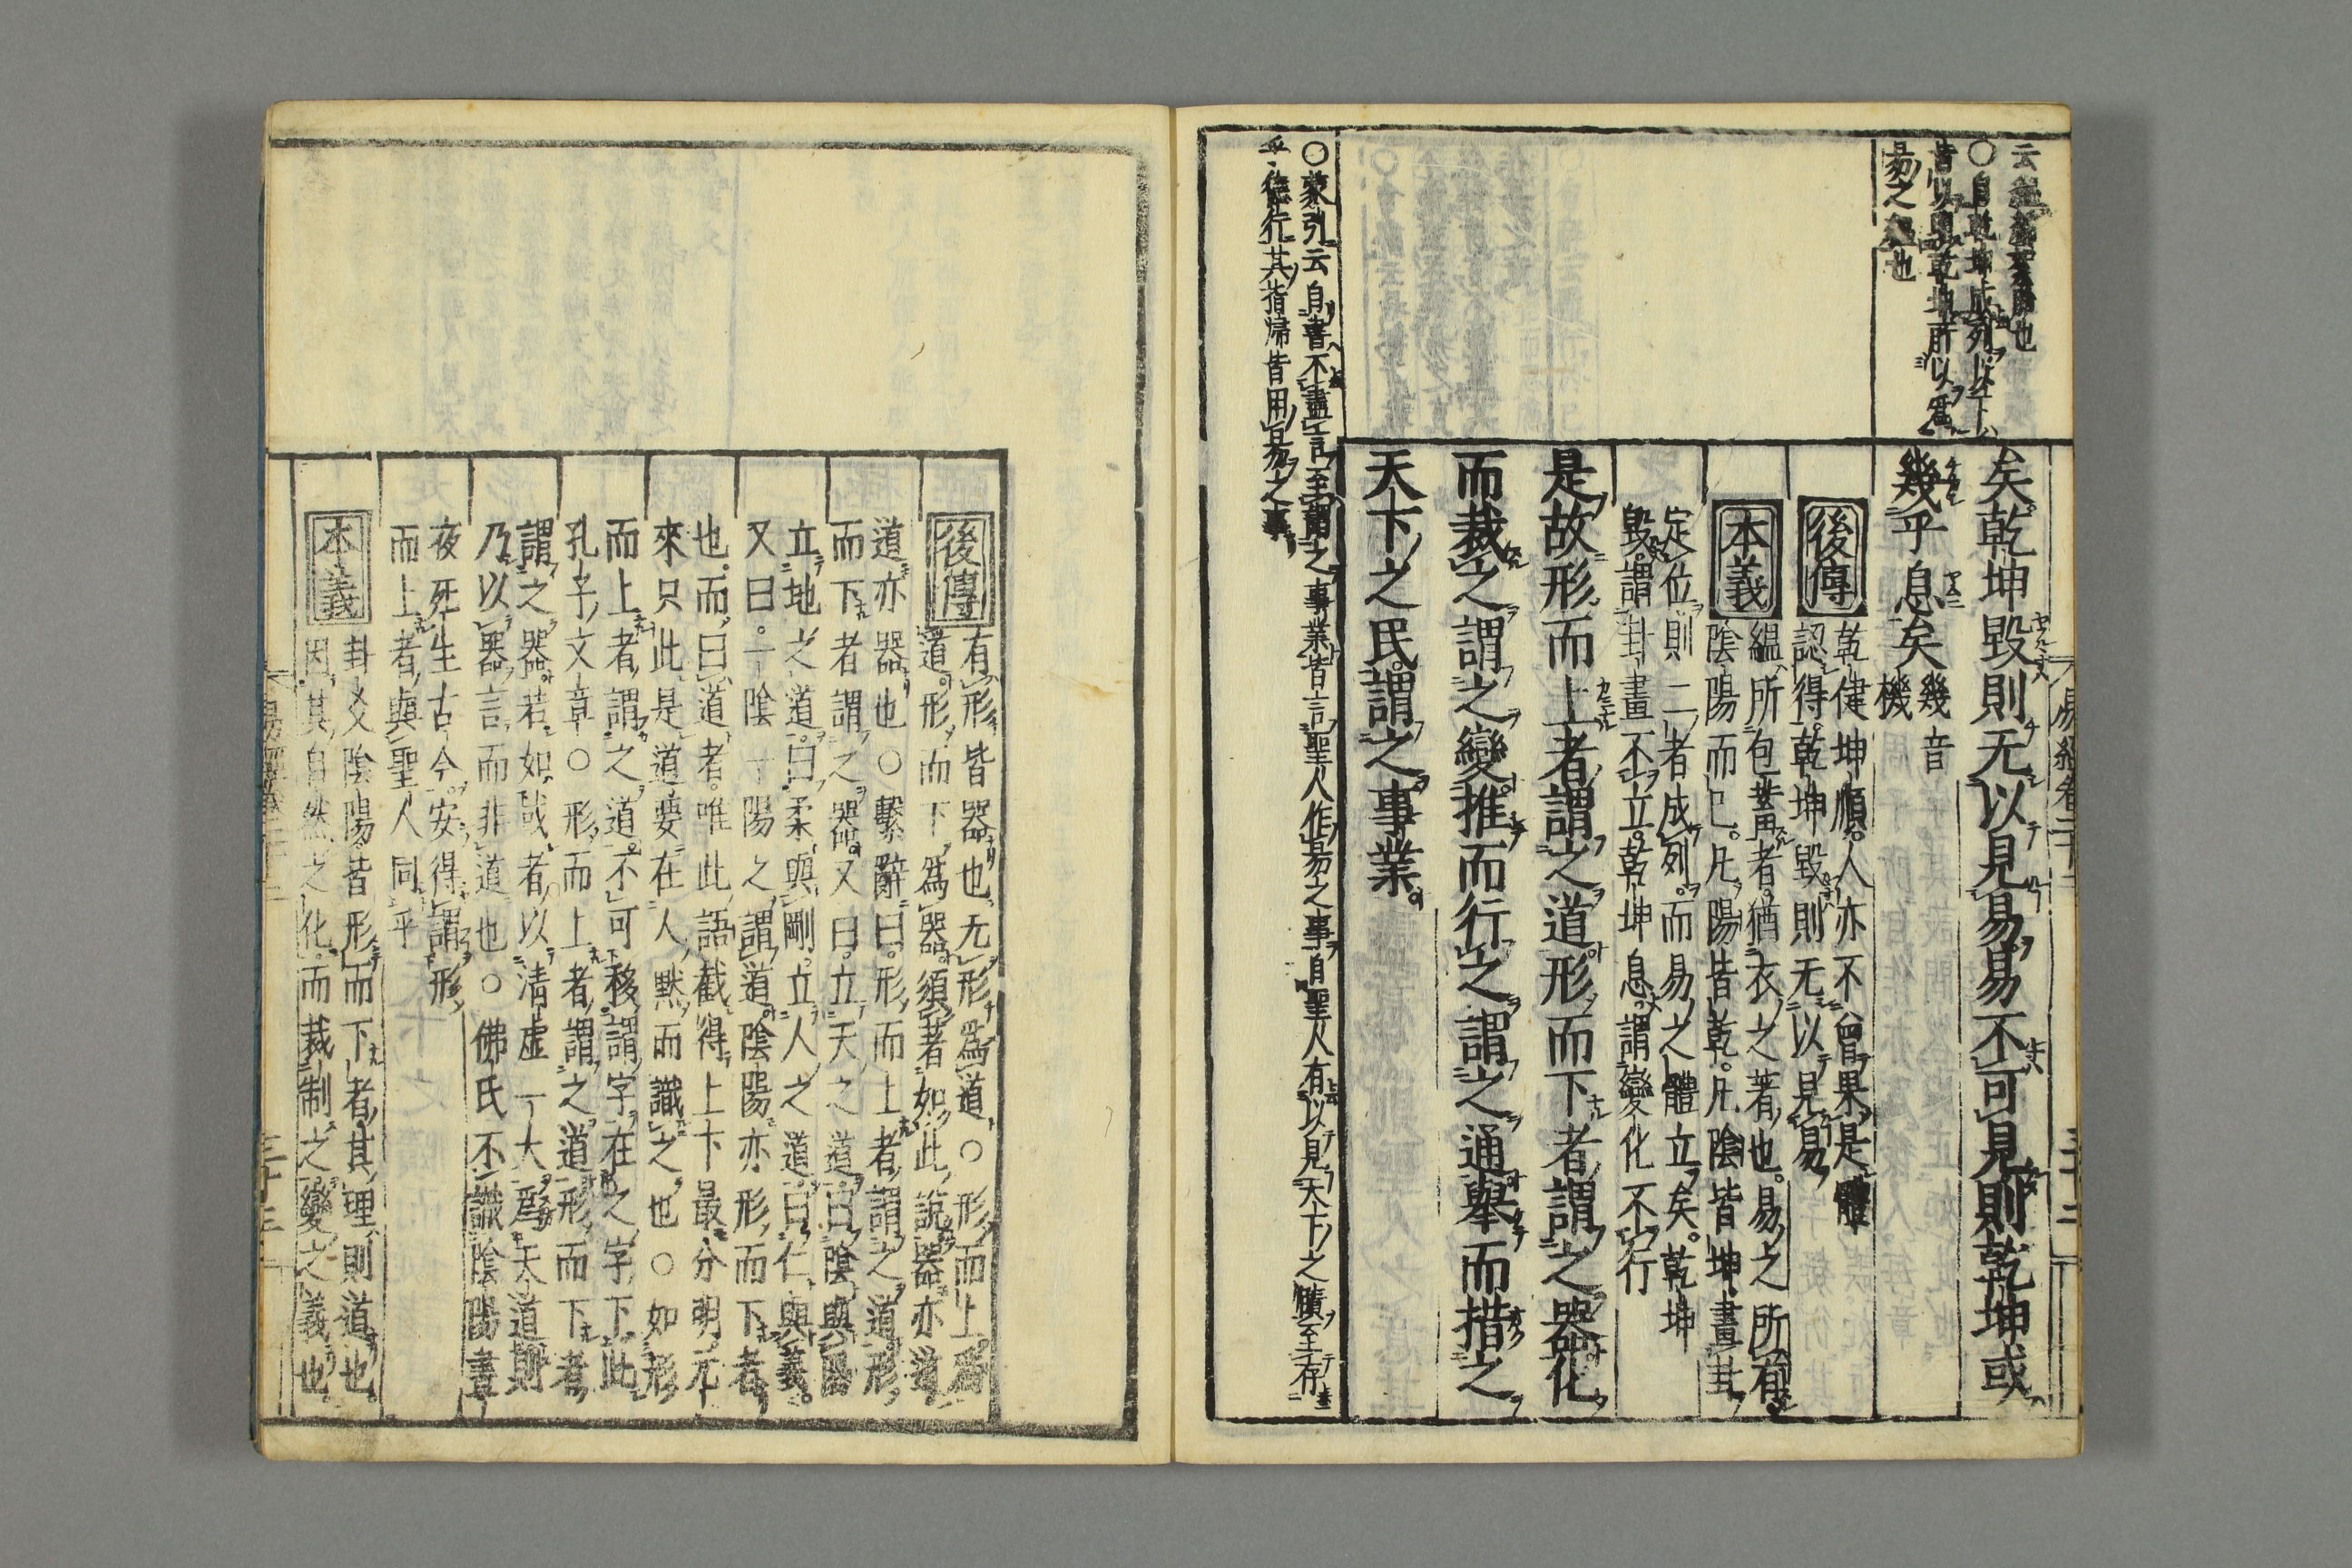 矣乾坤毀則无以見易易不可見則乾坤或
幾乎息矣幾音機
後傳
乾健坤順人亦不曾果是體
認得乾坤毀則无以見易
本義
縕所包蓄者猶衣之著也易之所有
陰陽而已凡陽皆乾凡陰皆坤畫卦
定位則二者成列而易之體立矣乾坤
毀謂卦畫不立乾坤息謂變化不行
是故形而上者謂之道形而下者謂之器化
而裁之謂之變推而行之謂之通舉而措之
天下之民謂之事業
○自乾坤成列以下
皆以明乾坤所以爲
易之縕也
○蒙引云自書不盡言至謂之事業皆言聖人作易之事自聖人有以見天下之賾至存
乎德行其指歸皆用易之事
後傳
有形皆器也无形爲道○形而上爲
道形而下爲器須著如此說器亦道
道亦器也○繫辭曰形而上者謂之道形
而下者謂之器又曰立天之道曰陰與陽
立地之道曰柔與剛立人之道曰仁與義
又曰一陰一陽之謂道陰陽亦形而下者
也而曰道者唯此語截得上下最分明元
來只此是道要在人默而識之也○如形
而上者謂之道不可移謂字在之字下此
孔子文章○形而上者謂之道形而下者
謂之器若如或者以淸虛一大爲天道則
乃以器言而非道也○佛氏不識陰陽晝
夜死生古今安得謂形
而上者與聖人同乎
本義
卦爻陰陽皆形而下者其理則道也
因其自然之化而裁制之變之義也
易經卷二十二
三十三